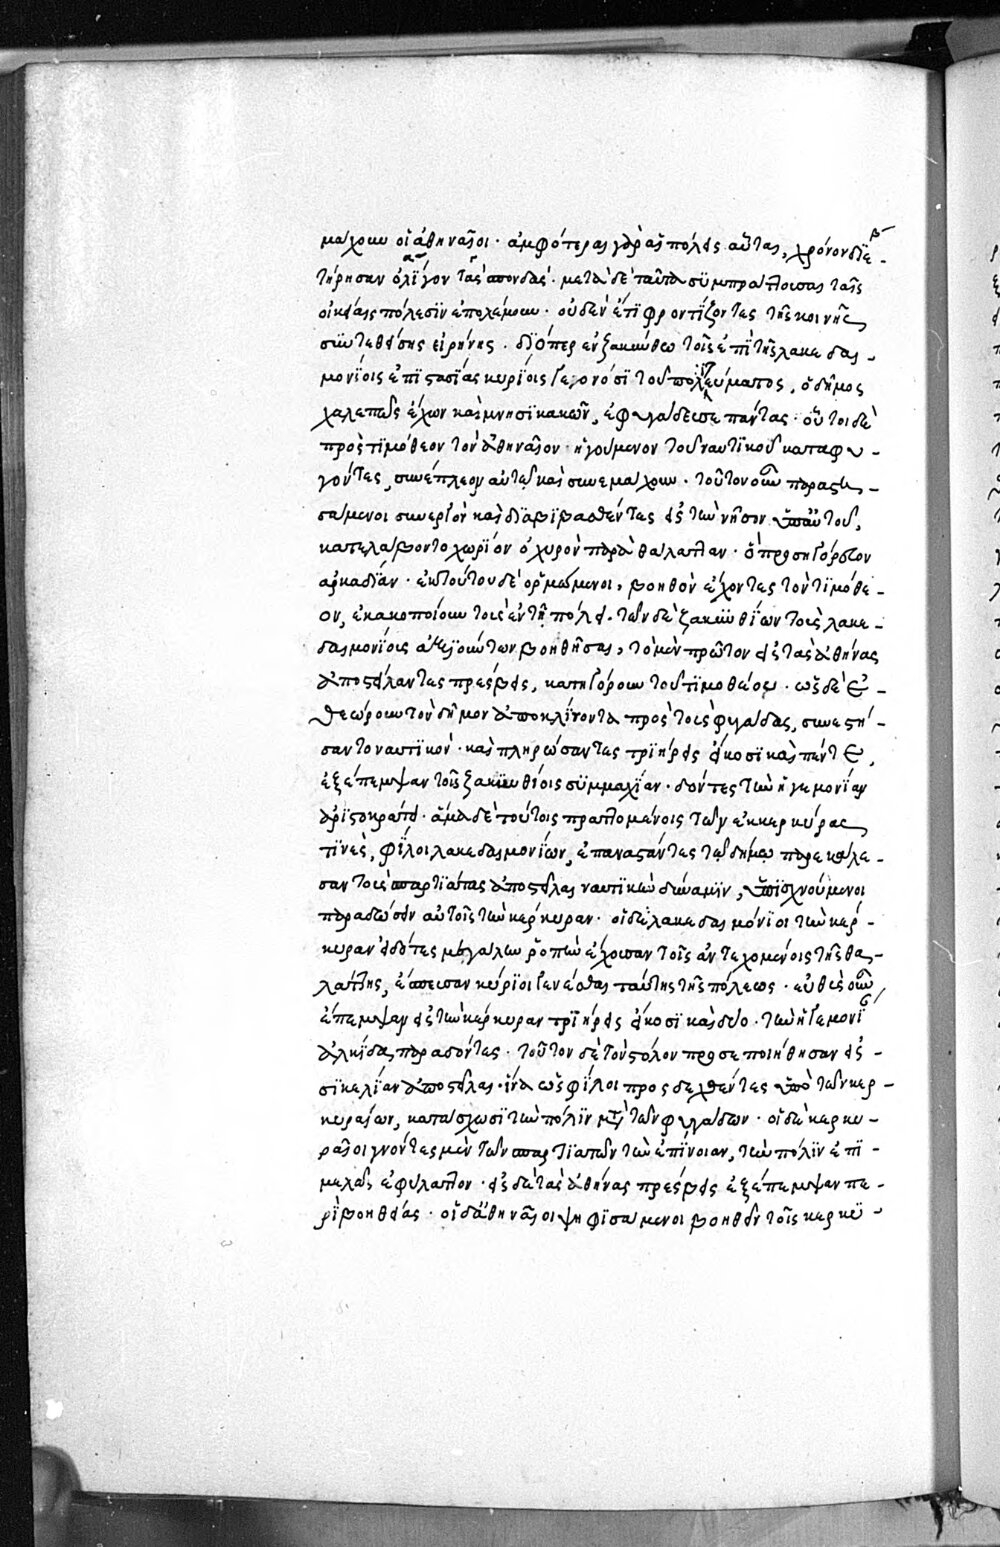 μάχουν οἱ ἀθηναῖοι · ἀμφότεραι γὰρ αἱ πόλεις αὗται, χρόνον διε -
τήρησαν ὀλίγον τὰς σπονδάς · μετὰ δὲ ταῦτα συμπράττουσαι ταῖς
οἰκείαις πόλεσιν ἐπολέμουν · οὐδὲν ἔτι φροντίζοντες τῆς κοινῆς
συντεθείσης εἰρήνης · διόπερ ἐν ζακύνθω τοῖς ἐπὶ τῆς λακεδαι -
μονίοις ἐπιστασίας κυρίοις γεγονόσι τοῦ πολιτεύματος, ὁ δῆμος
χαλεπῶς ἔχων καὶ μνησικακῶν, ἐφυγάδευσε πάντας · οὗτοι δὲ
πρὸς τιμόθεον τὸν ἀθηναῖον ἡγούμενον τοῦ ναυτικοῦ καταφυ -
γόντες, συνέπλεον αὐτῶ καὶ συνεμάχουν · τοῦτον οὖν παραστη -
σάμενοι συνεργὸν καὶ διαβιβασθέντες εἰς τὴν νῆσον ὑπ' αὐτοῦ,
κατελάβοντο χωρίον ὀχυρὸν παρὰ θάλατταν · ὃ προσηγόρευον
ἀρκαδίαν · ἐκ τούτου δὲ ὁρμώμενοι, βοηθὸν ἔχοντες τὸν τιμόθε -
ον, ἐκακοποίουν τοὺς ἐν τῆ πόλει · τῶν δὲ ζακυνθίων τοὺς λακε -
δαιμονίους ἀξιούντων βοηθῆσαι, τὸ μὲν πρῶτον εἰς τὰς ἀθήνας
ἀποστείλαντες πρέσβεις, κατηγόρουν τοῦ τιμοθέου · ὡς δὲ ἐ -
θεώρουν τὸν δῆμον ἀποκλίνοντα πρὸς τοὺς φυγάδας, συνεστή -
σαντο ναυτικόν · καὶ πληρώσαντες τριήρεις εἴκοσι καὶ πέντε,
ἐξέπεμψαν τοῖς ζακυνθίοις συμμαχίαν · δόντες τὴν ἡγεμονίαν
ἀριστοκράτει · ἅμα δὲ τούτοις πραττομένοις τῶν ἐν κερκύρα
τινὲς, φίλοι λακεδαιμονίων, ἐπαναστάντες τῶ δήμω παρεκάλε -
σαν τοὺς σπαρτιάτας ἀποστεῖλαι ναυτικὴν δύναμιν, ὑπισχνούμενοι
παραδώσειν αὐτοῖς τὴν κέρκυραν · οἱ δὲ λακεδαιμόνιοι τὴν κέρ -
κυραν εἰδότες μεγάλην ῥοπὴν ἔχουσαν τοῖς ἀντεχομένοις τῆς θα -
λάττης, ἔσπευσαν κύριοι γενέσθαι ταύτης τῆς πόλεως · εὐθὺς οὖν
ἔπεμψαν εἰς τὴν κέρκυραν τριήρεις εἴκοσι καὶ δύο · τὴν ἡγεμονί
ἀλκίδα παραδόντες · τοῦτον δὲ τὸν στόλον προσεποιήθησαν εἰς -
σικελίαν ἀποστεῖλαι · ἵνα ὡς φίλοι προσδεχθέντες ὑπὸ τῶν κερ -
κυραίων, κατάσχωσι τὴν πόλιν μετὰ τῶν φυγάδων · οἱ δὲ κερκυ -
ραῖοι γνόντες μὲν τῶν σπαρτιατῶν τὴν ἐπίνοιαν, τὴν πόλιν ἐπι -
μελῶς ἐφύλαττον · εἰς δὲ τὰς ἀθήνας πρέσβεις ἐξέπεμψαν πε -
ρὶ βοηθείας · οἱ δ' ἀθηναῖοι ψηφισάμενοι βοηθεῖν τοῖς κερκυ -